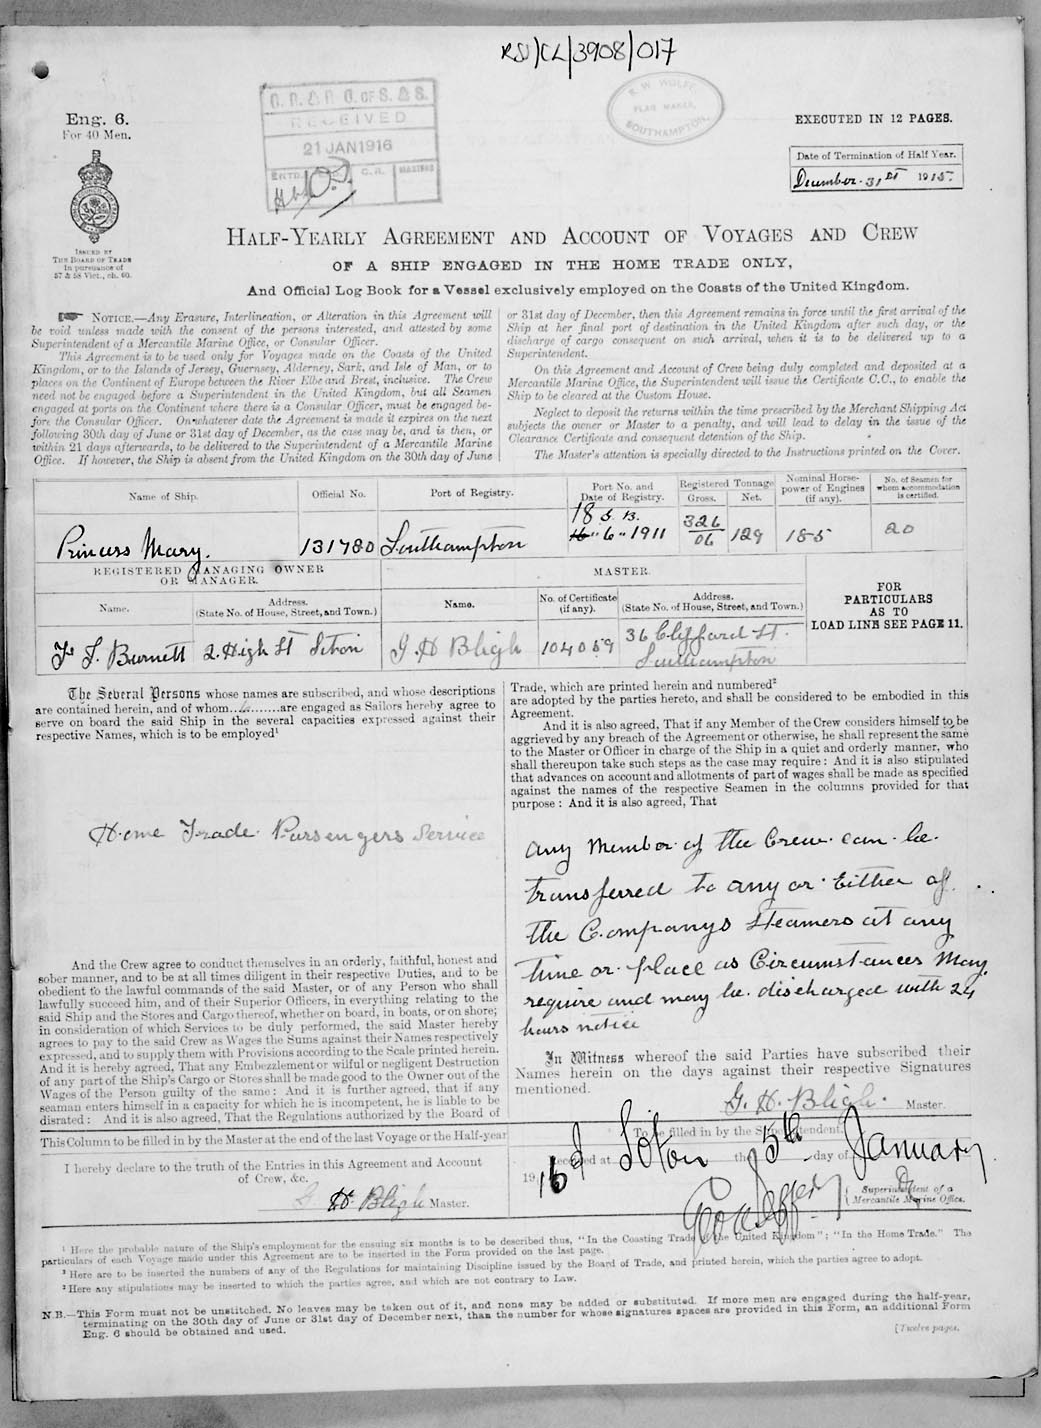 RSS/CL/3908/017
Eng. 6.
For 40 Men.
ISSUED BY
THE BOARD OF TRADE
In pursuance of
57 & 58 Vict., ch. 60.
G. R. & R. G. OF S. & S.
RECEIVED
21 JAN 1916
ENTD.
C.R.
MASTERS
R. W. WOLFE,
FLAG MAKER,
SOUTHAMPTON.
EXECUTED IN 12 PAGES.
Date of Termination of Half Year.
December 31st 1915
HALF-YEARLY AGREEMENT AND ACCOUNT OF VOYAGES AND CREW
OF A SHIP ENGAGED IN THE HOME TRADE ONLY,
And Official Log Book for a Vessel exclusively employed on the Coasts of the United Kingdom.
NOTICE.—Any Erasure, Interlineation, or Alteration in this Agreement will
be void unless made with the consent of the persons interested, and attested by some
Superintendent of a Mercantile Marine Office, or Consular Officer.
This Agreement is to be used only for Voyages made on the Coasts of the United
Kingdom, or to the Islands of Jersey, Guernsey, Alderney, Sark, and Isle of Man, or to
places on the Continent of Europe between the River Elbe and Brest, inclusive. The Crew
need not be engaged before a Superintendent in the United Kingdom, but all Seamen
engaged at ports on the Continent where there is a Consular Officer, must be engaged be-
fore the Consular Officer. On whatever date the Agreement is made it expires on the next
following 30th day of June or 31st day of December, as the case may be, and is then, or
within 21 days afterwards, to be delivered to the Superintendent of a Mercantile Marine
Office. If however, the Ship is absent from the United Kingdom on the 30th day of June
or 31st day of December, then this Agreement remains in force until the first arrival of the
Ship at her final port of destination in the United Kingdom after such day, or the
discharge of cargo consequent on such arrival, when it is to be delivered up to a
Superintendent.
On this Agreement and Account of Crew being duly completed and deposited at a
Mercantile Marine Office, the Superintendent will issue the Certificate C.C., to enable the
Ship to be cleared at the Custom House.
Neglect to deposit the returns within the time prescribed by the Merchant Shipping Act
subjects the owner or Master to a penalty, and will lead to delay in the issue of the
Clearance Certificate and consequent detention of the Ship.
The Master's attention is specially directed to the Instructions printed on the Cover.
Name of Ship.
Official No.
Port of Registry.
Port No. and
Date of Registry.
Registered Tonnage
Gross.
Net.
Nominal Horse-
power of Engines
(if any).
No. of Seamen for
whom accommodation
is certified.
Princess Mary.
131780
Southampton
18 S. B.
16" 6" 1911
326
06
129
185
20
REGISTERED MANAGING OWNER
OR MANAGER.
MASTER.
Name.
Address.
(State No. of House, Street, and Town.)
Name.
No. of Certificate
(if any).
Address.
(State No. of House, Street, and Town.)
FOR
PARTICULARS
AS TO
LOAD LINE SEE PAGE 11.
Burnett
2. High St Soton
G H Bligh
104059
36 Clifford St.
Southampton
The Several Persons whose names are subscribed, and whose descriptions
are contained herein, and of whom...6.......are engaged as Sailors hereby agree to
serve on board the said Ship in the several capacities expressed against their
respective Names, which is to be employed¹
Home Trade Passengers Service
And the Crew agree to conduct themselves in an orderly, faithful, honest and
sober manner, and to be at all times diligent in their respective Duties, and to be
obedient to the lawful commands of the said Master, or of any Person who shall
lawfully succeed him, and of their Superior Officers, in everything relating to the
said Ship and the Stores and Cargo thereof, whether on board, in boats, or on shore;
in consideration of which Services to be duly performed, the said Master hereby
agrees to pay to the said Crew as Wages the Sums against their Names respectively
expressed, and to supply them with Provisions according to the Scale printed herein.
And it is hereby agreed, That any Embezzlement or wilful or negligent Destruction
of any part of the Ship's Cargo or Stores shall be made good to the Owner out of the
Wages of the Person guilty of the same: And it is further agreed, that if any
seaman enters himself in a capacity for which he is incompetent, he is liable to be
disrated: And it is also agreed, That the Regulations authorized by the Board of
Trade, which are printed herein and numbered²
are adopted by the parties hereto, and shall be considered to be embodied in this
Agreement.
And it is also agreed, That if any Member of the Crew considers himself to be
aggrieved by any breach of the Agreement or otherwise, he shall represent the same
to the Master or Officer in charge of the Ship in a quiet and orderly manner, who
shall thereupon take such steps as the case may require: And it is also stipulated
that advances on account and allotments of part of wages shall be made as specified
against the names of the respective Seamen in the columns provided for that
purpose: And it is also agreed, That
any Member of the Crew can be
transferred to any or Either of
the Companys Steamers at any
time or place as Circumstances May
require and may be discharged with 24
hours notice
In Witness whereof the said Parties have subscribed their
Names herein on the days against their respective Signatures
mentioned.
G. H. Bligh. Master.
This Column to be filled in by the Master at the end of the last Voyage or the Half-year
I hereby declare to the truth of the Entries in this Agreement and Account
of Crew, &c.
H. Bligh Master.
To be filled in by the Superintendent.
Received at Soton the 5th day of January
1916
Superintendent of a
Mercantile Marine Office.
¹ Here the probable nature of the Ship's employment for the ensuing six months is to be described thus, "In the Coasting Trade of the United Kingdom"; "In the Home Trade." The
particulars of each Voyage made under this Agreement are to be inserted in the Form provided on the last page.
² Here are to be inserted the numbers of any of the Regulations for maintaining Discipline issued by the Board of Trade, and printed herein, which the parties agree to adopt.
³ Here any stipulations may be inserted to which the parties agree, and which are not contrary to Law.
N.B.—This Form must not be unstitched. No leaves may be taken out of it, and none may be added or substituted. If more men are engaged during the half-year,
terminating on the 30th day of June or 31st day of December next, than the number for whose signatures spaces are provided in this Form, an additional Form
Eng. 6 should be obtained and used.
[Twelve pages.